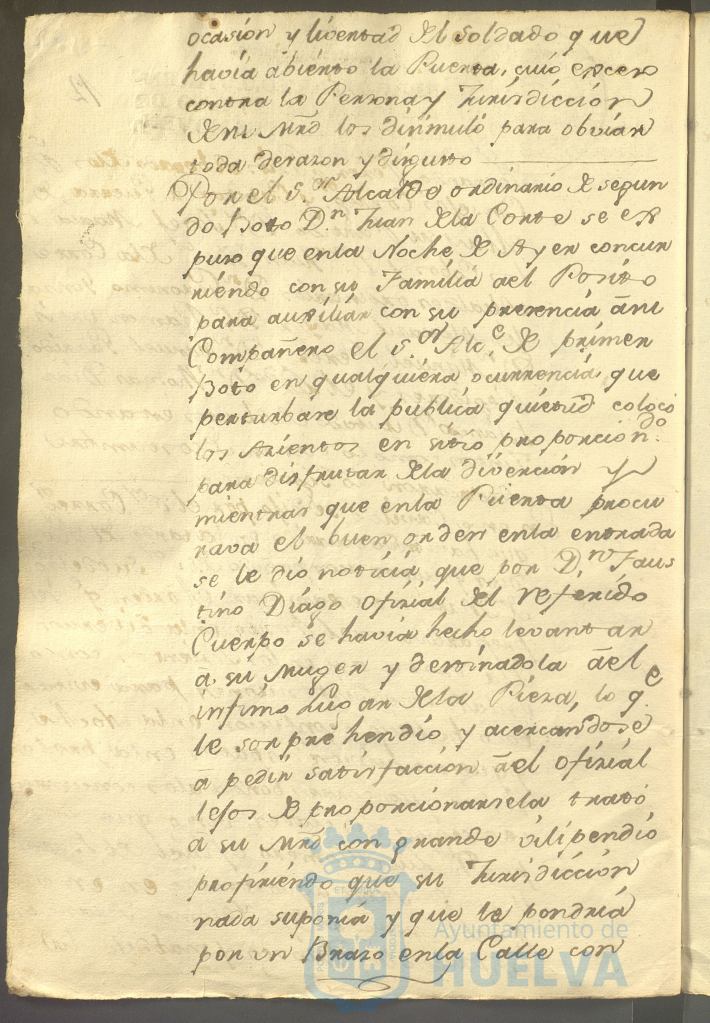 ocasión y livertad del soldado que
havía abierto la Puerta, cuio exceso
contra la Persona y Jurisdicción
de mi Mrd los disimuló para obviar
toda desazon y disgusto
Por el S.or Alcalde ordinario de segun
do Boto D.n Juan de la Corte se ex
puso que en la Noche de Ayer concur
riendo con su Familia ael Posito
para auxiliar con su presencia âmi
Compañero el S.or Alc.e de primer
Boto en qualquiera ocurrencia, que
perturbare la publica quietud colocó
los Asientos en sitio proporcion.do
para disfrutar de la diverción y
mientras que en la Puerta procu
rava el buen orden en la entrada
se le dio noticia, que por D.n Faus
tino Diágo ofizial del referido
Cuerpo se havia hecho levantar
a su Muger y destinadola âel
infimo lugar de la Pieza, lo q.e
le sorprehendio y acercandose
a pedir satisfacción âel ofizial
lejos de proporcionarsela trató
a su Mrd con grande vilipendio
profiriendo que su Jurisdicción
nada suponia y que le pondria
por un Brazo en la Calle con
Ayuntamiento de
HUELVA